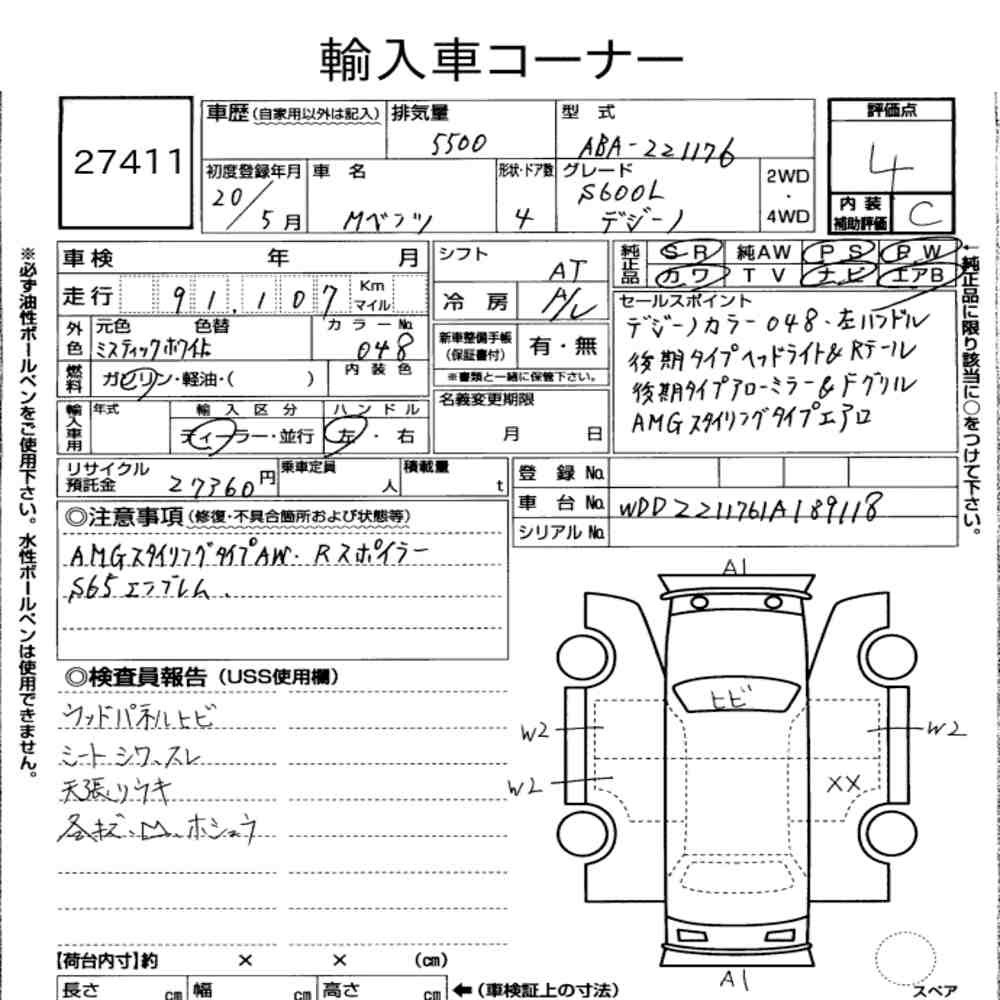 輸入車コーナー
27411
車歴(自家用以外は記入) 排気量 型式 評価点
5500 ABA-221176 4
初度登録年月 車名 形状・ドア数 グレード 2WD・4WD
20/5月 Mベンツ 4 S600L デジーノ
内装補助評価 C
車検 年 月
走行 91,107 Km マイル
外色 元色 色替 カラーNo.
ミスティックホワイト 048
燃料 ガソリン・軽油・( ) 内装色
輸入車用 年式 輸入区分 ハンドル
ディーラー・並行 左・右
シフト AT
冷房 A/C
新車整備手帳(保証書付) 有・無
※書類と一緒に保管下さい。
名義変更期限
月 日
純正品 SR 純AW PS PW
カワ TV ナビ エアB
セールスポイント
デジーノカラー048・左ハンドル
後期タイプヘッドライト&Rテール
後期タイプアローミラー&Fグリル
AMGスタイリングタイプエアロ
←純正品に限り該当に○をつけて下さい。
リサイクル預託金 27360円 乗車定員 人 積載量 t
登録No.
車台No. WDD2211761A189118
シリアルNo.
◎注意事項(修復・不具合箇所および状態等)
AMGスタイリングタイプAW・Rスポイラー
S65エンブレム.
◎検査員報告(USS使用欄)
ウッドパネルヒビ
シートシワ、スレ
天張りウキ
ホシュウ
※必ず油性ボールペンをご使用下さい。水性ボールペンは使用できません。
A1
ヒビ
W2
W2
W2
XX
A1
スペア
【荷台内寸】約 × × (cm)
長さ cm 幅 cm 高さ cm ←(車検証上の寸法)